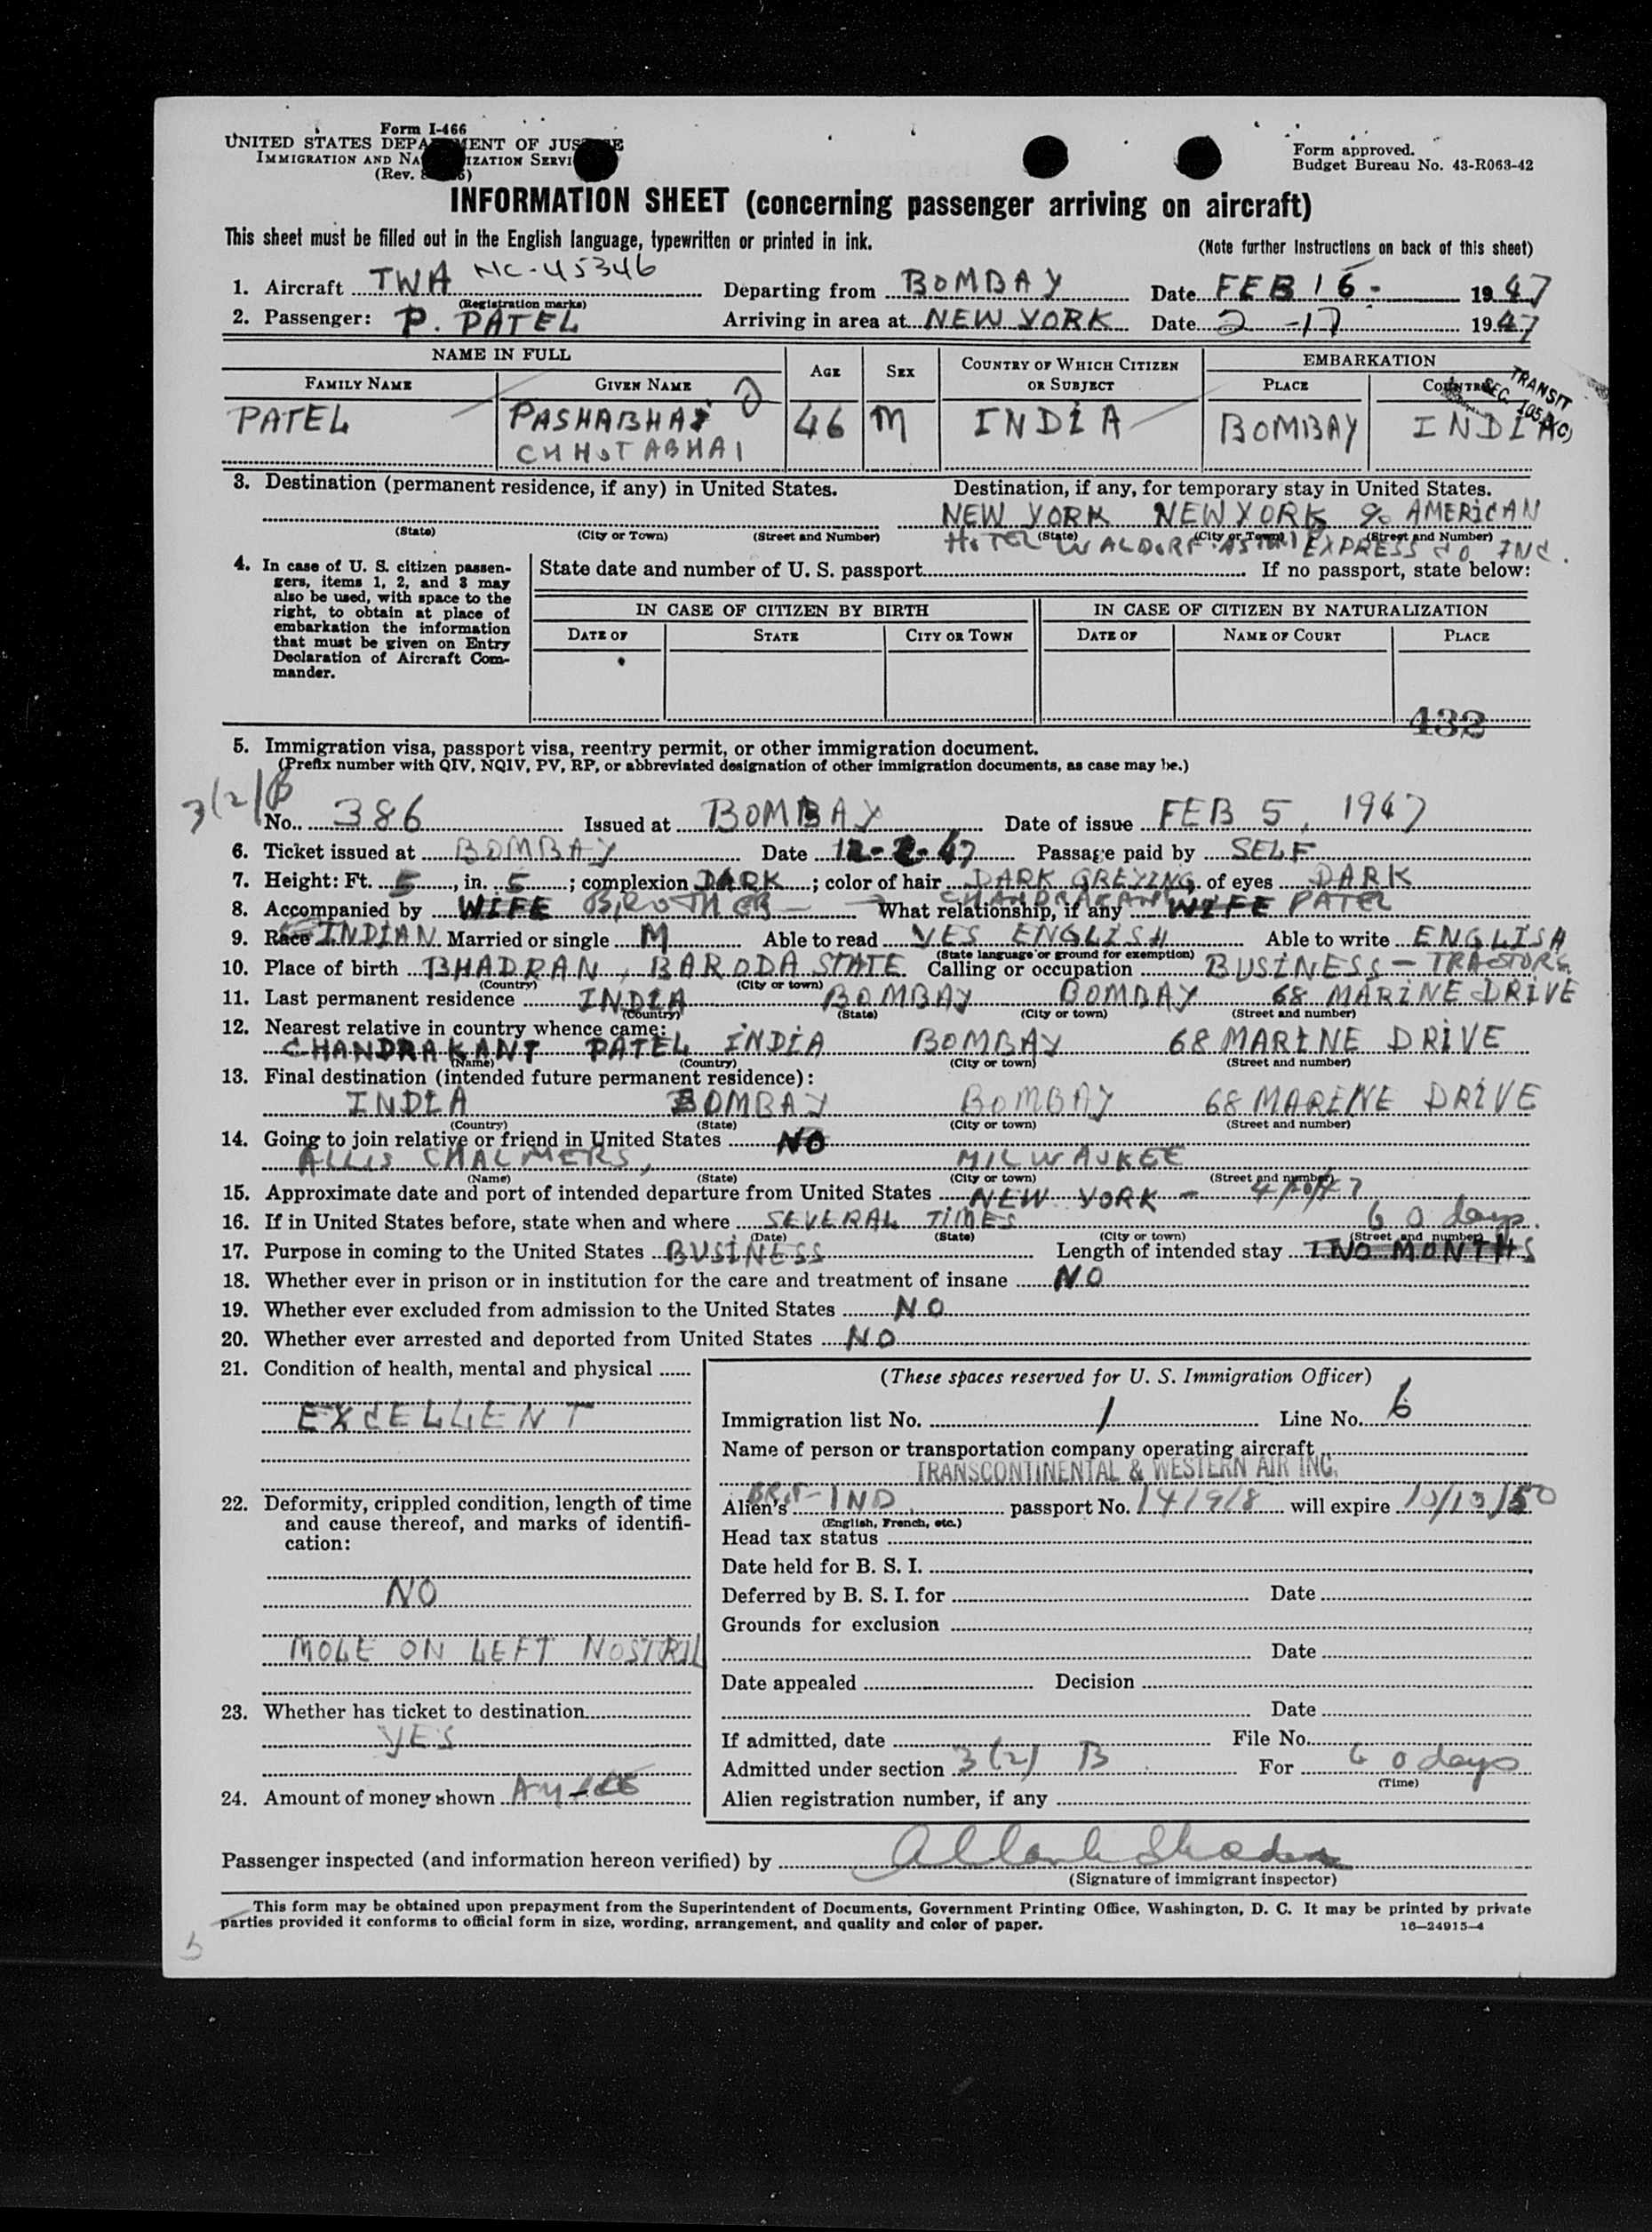 Form I-466
UNITED STATES DEPARTMENT OF JUSTICE
IMMIGRATION AND NATURALIZATION SERVICE
(Rev.
Form approved.
Budget Bureau No. 43-R063-42
INFORMATION SHEET (concerning passenger arriving on aircraft)
This sheet must be filled out in the English language, typewritten or printed in ink.
(Note further instructions on back of this sheet)
1. Aircraft TWA NC-45346 Departing from BOMBAY Date FEB 16 - 1947
(Registration marks)
2. Passenger: P. PATEL Arriving in area at NEW YORK Date 2-17 1947
NAME IN FULL AGE SEX COUNTRY OF WHICH CITIZEN OR SUBJECT EMBARKATION
FAMILY NAME GIVEN NAME PLACE COUNTRY
TRANSIT SEC. 105.3(c)
PATEL PASHABHAI 46 M INDIA BOMBAY INDIA
CHHOTABHAI
3. Destination (permanent residence, if any) in United States. Destination, if any, for temporary stay in United States.
NEW YORK NEW YORK c/o AMERICAN
(State) (City or Town) (Street and Number) (State) (City or Town) (Street and Number)
HOTEL WALDORF ASTORIA EXPRESS CO INC.
4. In case of U. S. citizen passengers, items 1, 2, and 3 may also be used, with space to the right, to obtain at place of embarkation the information that must be given on Entry Declaration of Aircraft Commander.
State date and number of U. S. passport If no passport, state below:
IN CASE OF CITIZEN BY BIRTH IN CASE OF CITIZEN BY NATURALIZATION
DATE OF STATE CITY OR TOWN DATE OF NAME OF COURT PLACE
432
5. Immigration visa, passport visa, reentry permit, or other immigration document.
(Prefix number with QIV, NQIV, PV, RP, or abbreviated designation of other immigration documents, as case may be.)
3(2)B
No. 386 Issued at BOMBAY Date of issue FEB 5, 1947
6. Ticket issued at BOMBAY Date 12-2-47 Passage paid by SELF
7. Height: Ft. 5, in. 5; complexion DARK; color of hair DARK GREYING of eyes DARK
8. Accompanied by WIFE BROTHER - What relationship, if any CHANDRAKANT WIFE PATEL
9. Race INDIAN Married or single M Able to read YES ENGLISH Able to write ENGLISH
(State language or ground for exemption)
10. Place of birth BHADRAN, BARODA STATE Calling or occupation BUSINESS - TRACTORS
(Country) (City or town)
11. Last permanent residence INDIA BOMBAY BOMBAY 68 MARINE DRIVE
(Country) (State) (City or town) (Street and number)
12. Nearest relative in country whence came:
CHANDRAKANT PATEL INDIA BOMBAY 68 MARINE DRIVE
(Name) (Country) (City or town) (Street and number)
13. Final destination (intended future permanent residence):
INDIA BOMBAY BOMBAY 68 MARINE DRIVE
(Country) (State) (City or town) (Street and number)
14. Going to join relative or friend in United States NO
ALLIS CHALMERS, MILWAUKEE
(Name) (State) (City or town) (Street and number)
15. Approximate date and port of intended departure from United States NEW YORK -
16. If in United States before, state when and where SEVERAL TIMES
60 days.
(Date) (State) (City or town) (Street and number)
17. Purpose in coming to the United States BUSINESS Length of intended stay TWO MONTHS
18. Whether ever in prison or in institution for the care and treatment of insane NO
19. Whether ever excluded from admission to the United States NO
20. Whether ever arrested and deported from United States NO
21. Condition of health, mental and physical
EXCELLENT
22. Deformity, crippled condition, length of time and cause thereof, and marks of identification:
NO
MOLE ON LEFT NOSTRIL
23. Whether has ticket to destination
YES
24. Amount of money shown
(These spaces reserved for U. S. Immigration Officer)
Immigration list No. 1 Line No. 6
Name of person or transportation company operating aircraft
TRANSCONTINENTAL & WESTERN AIR INC.
Alien's BRIT-IND. passport No. 141918 will expire 10/13/50
(English, French, etc.)
Head tax status
Date held for B. S. I.
Deferred by B. S. I. for Date
Grounds for exclusion
Date
Date appealed Decision
Date
If admitted, date File No.
Admitted under section 3(2) B For 60 days
(Time)
Alien registration number, if any
Passenger inspected (and information hereon verified) by
(Signature of immigrant inspector)
This form may be obtained upon prepayment from the Superintendent of Documents, Government Printing Office, Washington, D. C. It may be printed by private
parties provided it conforms to official form in size, wording, arrangement, and quality and color of paper. 16—24915-4